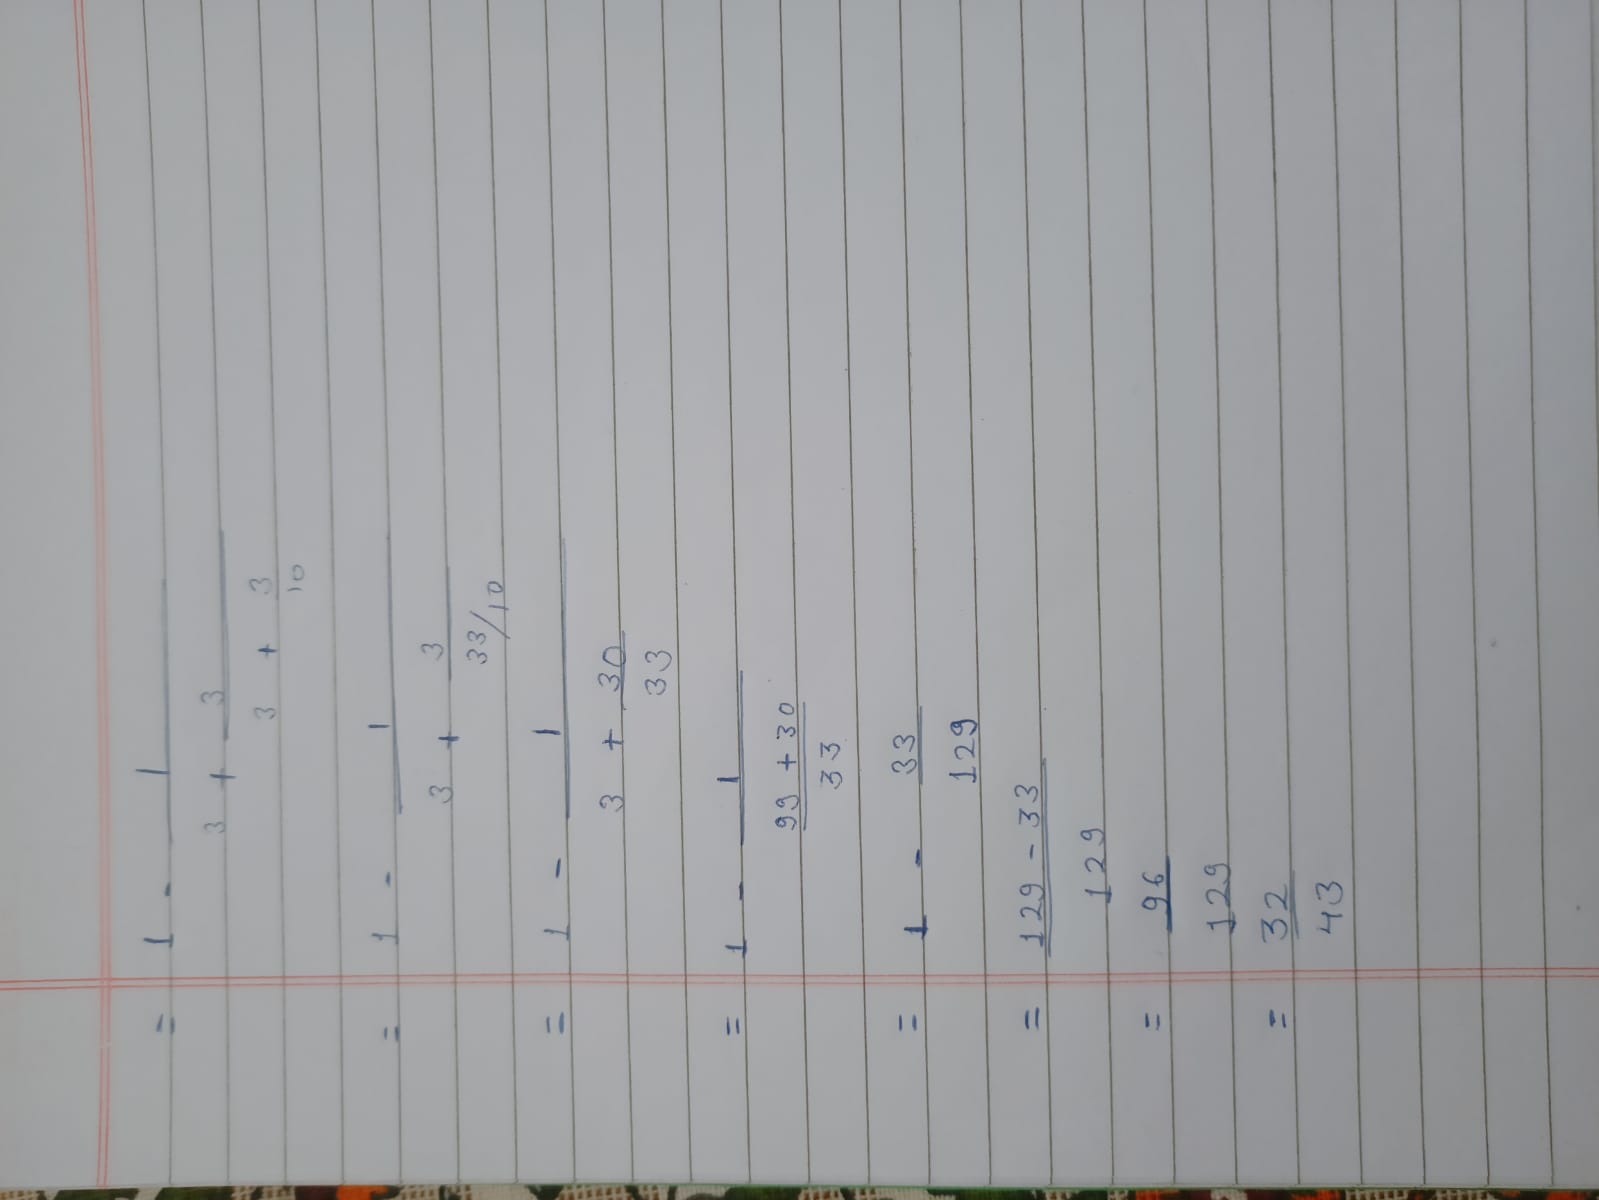 = 1 - 1
3 + 3
3 + 3
10
= 1 - 1
3 + 3
33/10
= 1 - 1
3 + 30
33
= 1 - 1
99 + 30
33
= 1 - 33
129
= 129 - 33
129
= 96
129
= 32
43